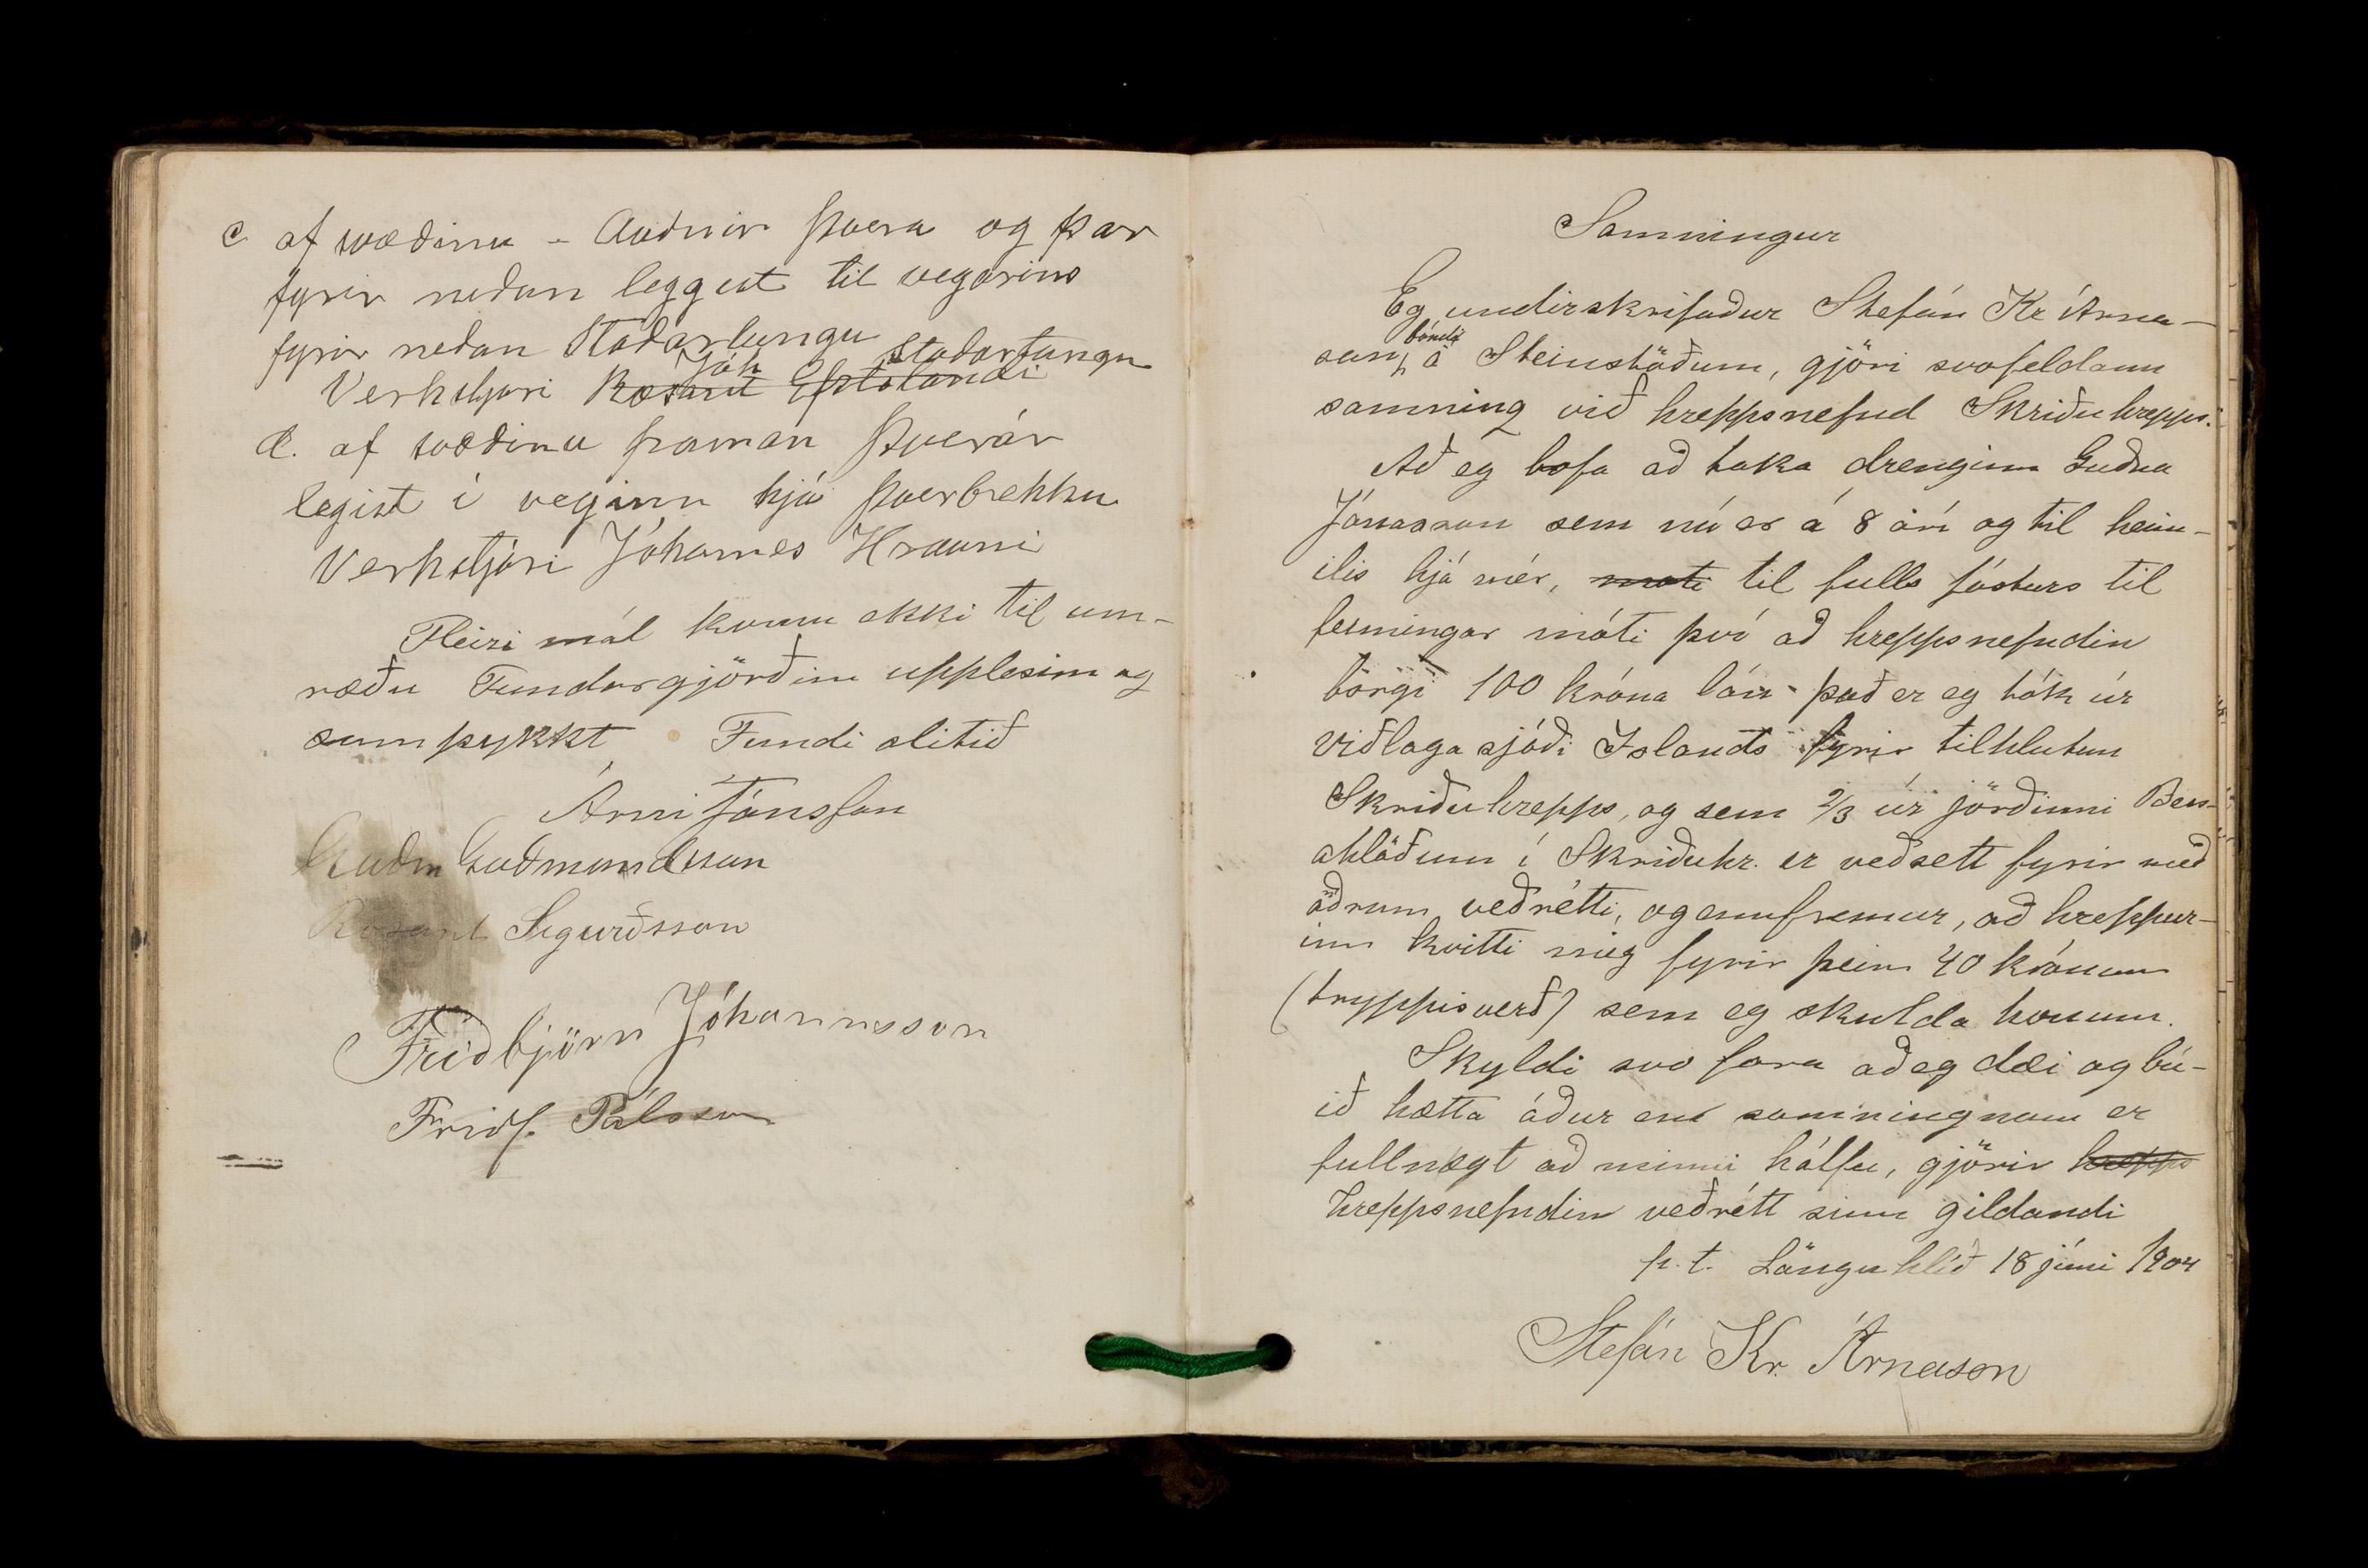 c af svæðinu - Auðnir Þvera og þar
fyrir neðan leggist til vegarins
fyrir neðan Staðartungu
Verkstjori Rosant Efstalandi Jóh Staðartungu
d. af svæðinu framan Þverár
legist í veginn hjá Þverbrekku
Verkstjóri Jóhannes Hrauni
Fleiri mál komu ekki til um-
ræðu Fundargjörðin upplesin og
samþykkt Fundi slitið
Árni Jónsson
Guðm Guðmundsson
Rosant Sigurðsson
Friðbjörn Jóhannsson
Friðf. Pálsson
Samningur
Eg undirskrifaður Stefán Kr Árna-
son, bóndi á Steinstöðum, gjöri svofeldann
samning við hreppsnefnd Skriðuhrepps.
Að eg lofa að taka drenginn Guðna
Jónasson sem nú er á 8 ári og til heim-
ilis hjá mér, moti til fulls fósturs til
fermingar móti því að hreppsnefndin
borgi 100 króna lán það er eg tók úr
viðlaga sjóði Islands fyrir tilhlutun
Skriðuhrepps, og sem 2/3 úr jörðinni Bess-
ahlöðum í Skriðuhr. er veðsett fyrir með
öðrum veðrétti, og ennfremur, að hreppur-
inn kvitti mig fyrir þeim 40 krónum
(tryppisverð) sem eg skulda honum.
Skyldi svo fara að eg dæi og bú-
ið hætta áður en samningnum er
fullnægt að minni hálfu, gjörir hrepps
hreppsnefndin veðrétt sinn gildandi
p.t. Lönguhlíð 18 júni 1904
Stefán Kr. Árnason